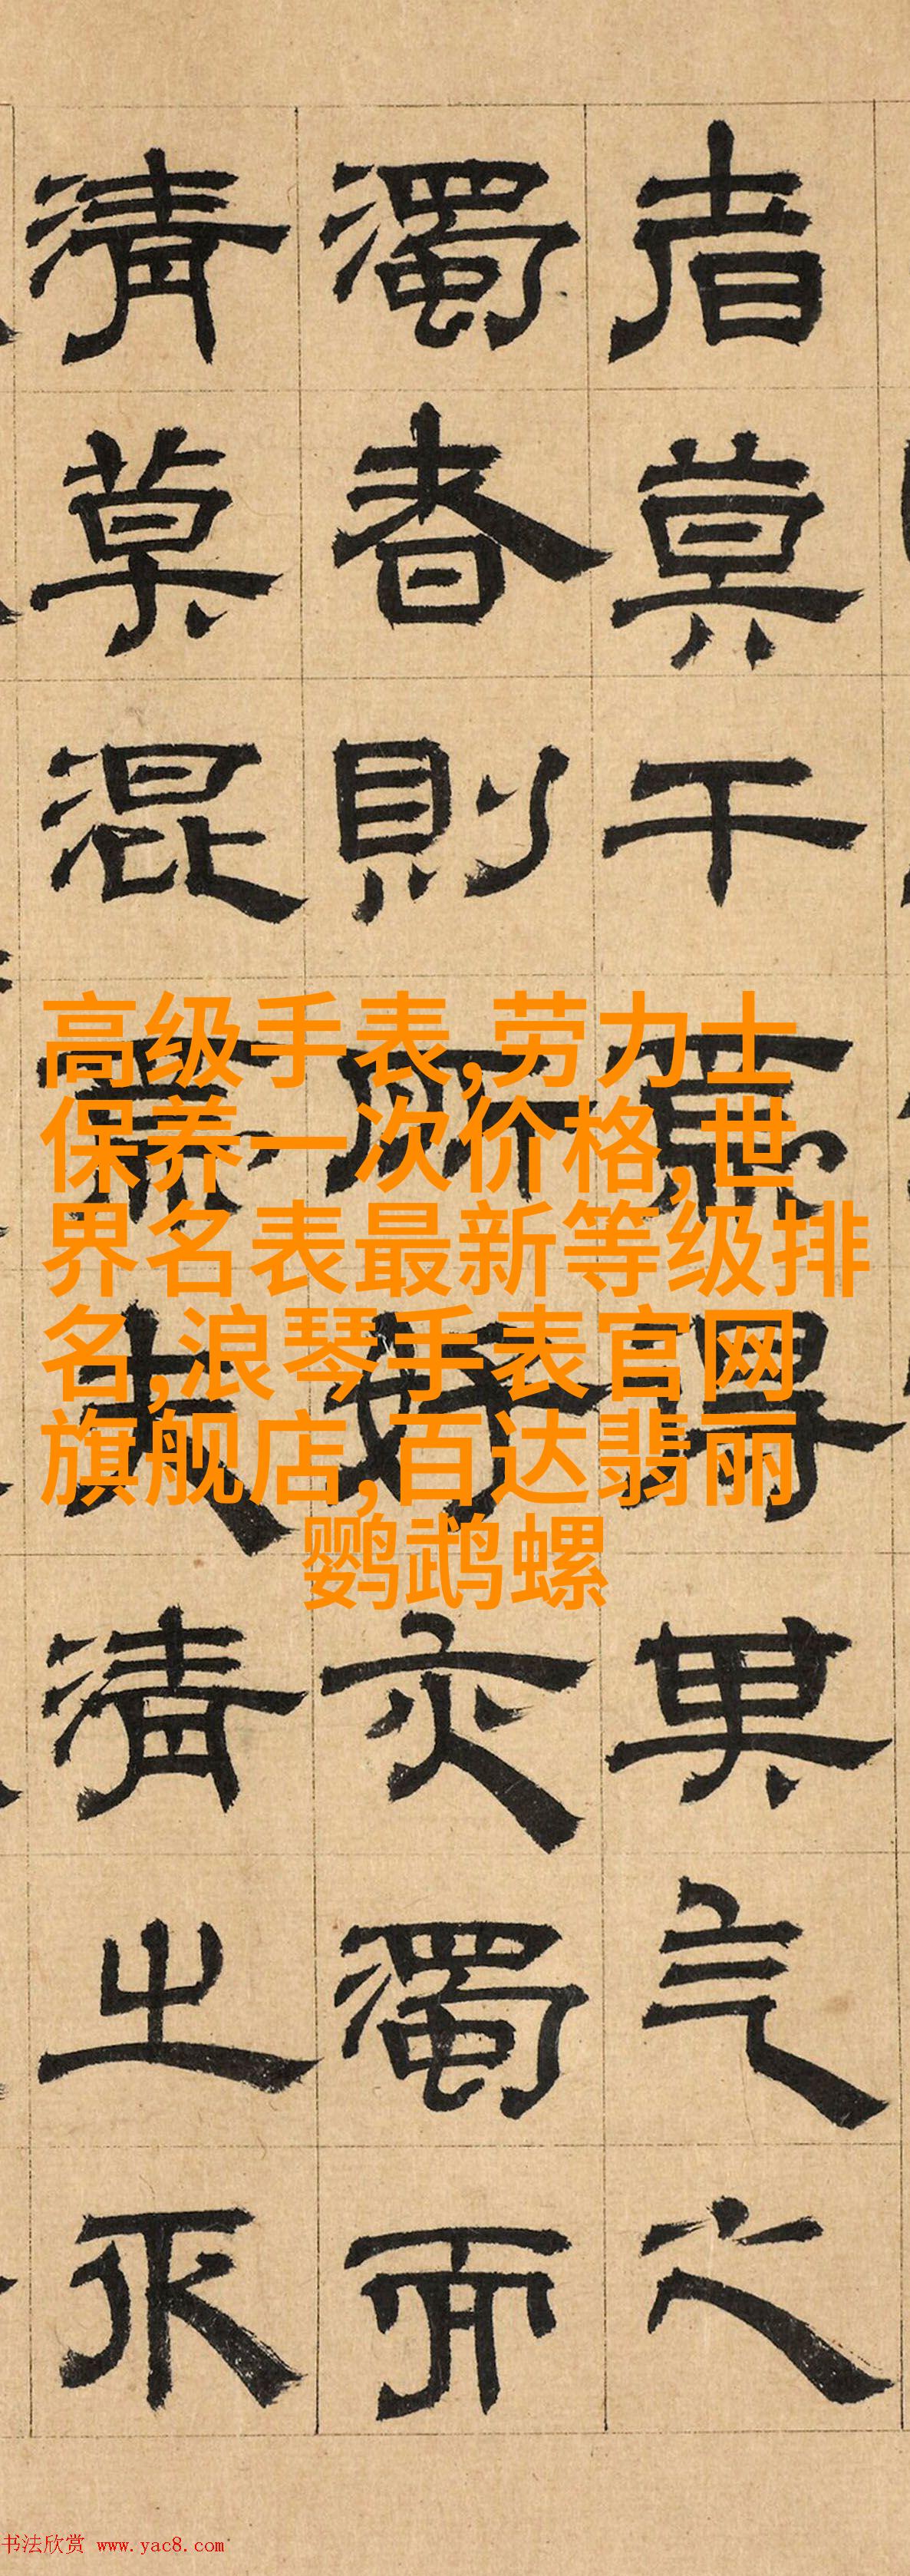 高级手表,劳力士
保养一次价格,世
界名表最新等级排
名,浪琴手表官网
旗舰店,百达翡丽
鹦鹉螺
者莫干得其气之
濁者則所好亦濁而
清混清之
书法欣赏 www.yac8.com